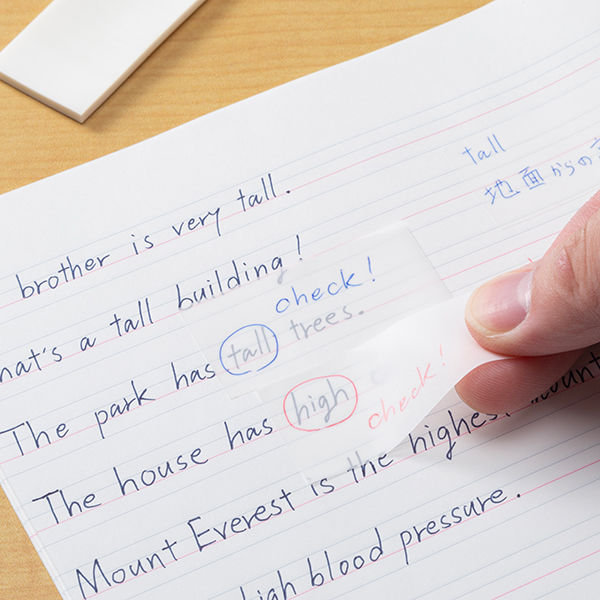 brother is very tall.
hat's a tall building!
check!
The park has tall trees.
The house has high
check!
Mount Everest is the highest mount
high blood pressure.
tall
地面からの